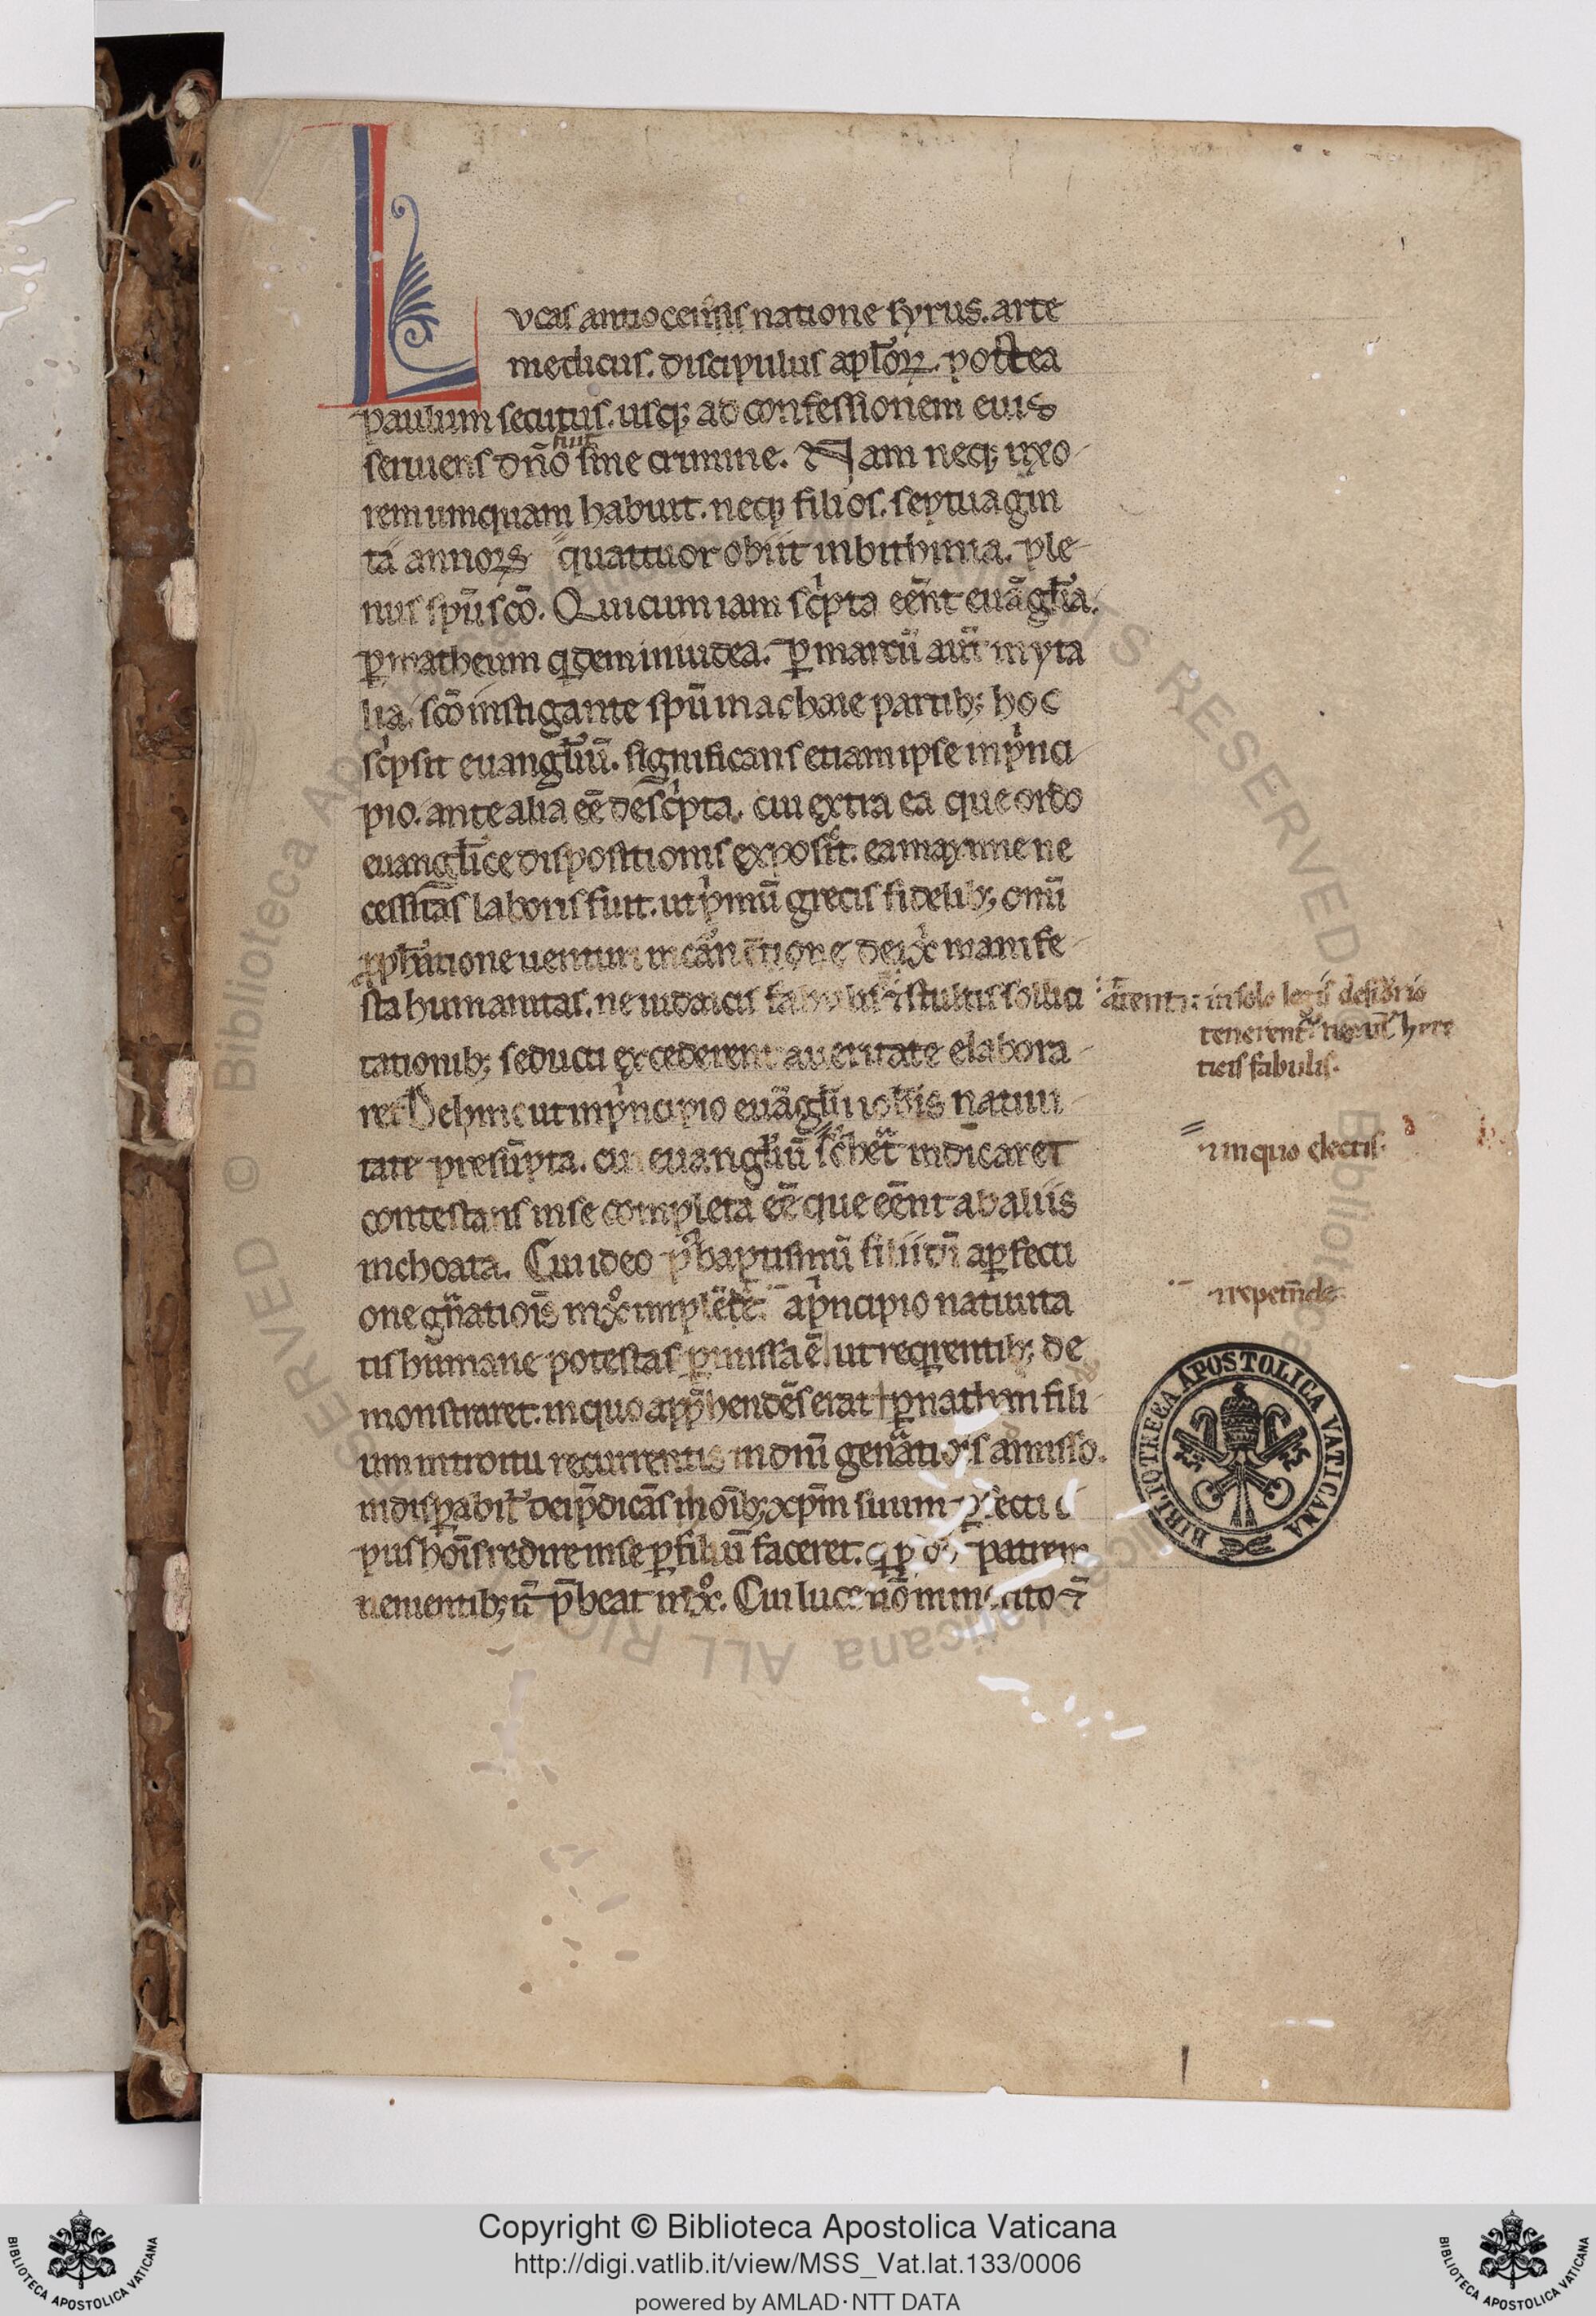 Lvcas antiocensis natione syrus. arte
medicus. discipulus apl̃oꝝ. postea
paulum secutus. usq; ad confessionem euis
seruiens dño fuit sine crimine. Nam neq; uxo
rem umquam habuit. neq; filios. septuagin
ta annoꝝ quattuor obiit in bithinia. ple
nus spũ scõ. Qui cum iam sc̃pta eẽnt euãglĩa.
ꝑ matheum qdem in iudea. ꝑ marcũ aũt in yta
lia. scõ instigante spũ in achaie partib; hoc
sc̃psit euanglĩũ. significans etiam ipse in p̃nci
pio. ante alia eẽ desc̃pta. cui extra ea que ordo
euanglĩce dispositionis exposcit. ea maxime ne
cessitas laboris fuit. ut p̃mũ grecis fidelib; omĩ
ꝓphatione uenturi in carnẽ dei xp̃c manife
sta humanitas. ne iudaicis fabulis ⁊ stultis sollici
tationib; seducti excederent a ueritate elabora
ret. Dehinc ut in p̃ncipio euãglĩi iohĩs natiui
tate presũpta. cui euanglĩũ sc̃beret indicaret
contestans in se completa eẽ que eẽnt ab aliis
inchoata. Cui ideo p̃ baptismũ filii dĩ a ꝑfecti
one gñationis in xp̃o implete. a p̃ncipio natiuita
tis humane potestas ꝑmissa ẽ ut reqrentib; de
monstraret. in quo app̃hendẽs erat ꝑ nathan fili
um introitu recurrentis in dm̃ gen̾ationis amisso.
indisꝑabil' dei p̃dicãs in hoĩb; xp̃m suum ꝑfecti
pus hoĩs redire in se ꝑ filiũ faceret. q p dd patrem
uenientib; p̃beat in xp̃o. Cui luce nõ inmerito ⁊
ãrenti: in solo legis desiderio
tenerent' ne uel here
ticis fabulis.
⁊ in quo electis.
⁊ repetnda
BIBLIOTHECA APOSTOLICA VATICANA
Copyright © Biblioteca Apostolica Vaticana
http://digi.vatlib.it/view/MSS_Vat.lat.133/0006
powered by AMLAD·NTT DATA
BIBLIOTECA APOSTOLICA VATICANA
BIBLIOTECA APOSTOLICA VATICANA